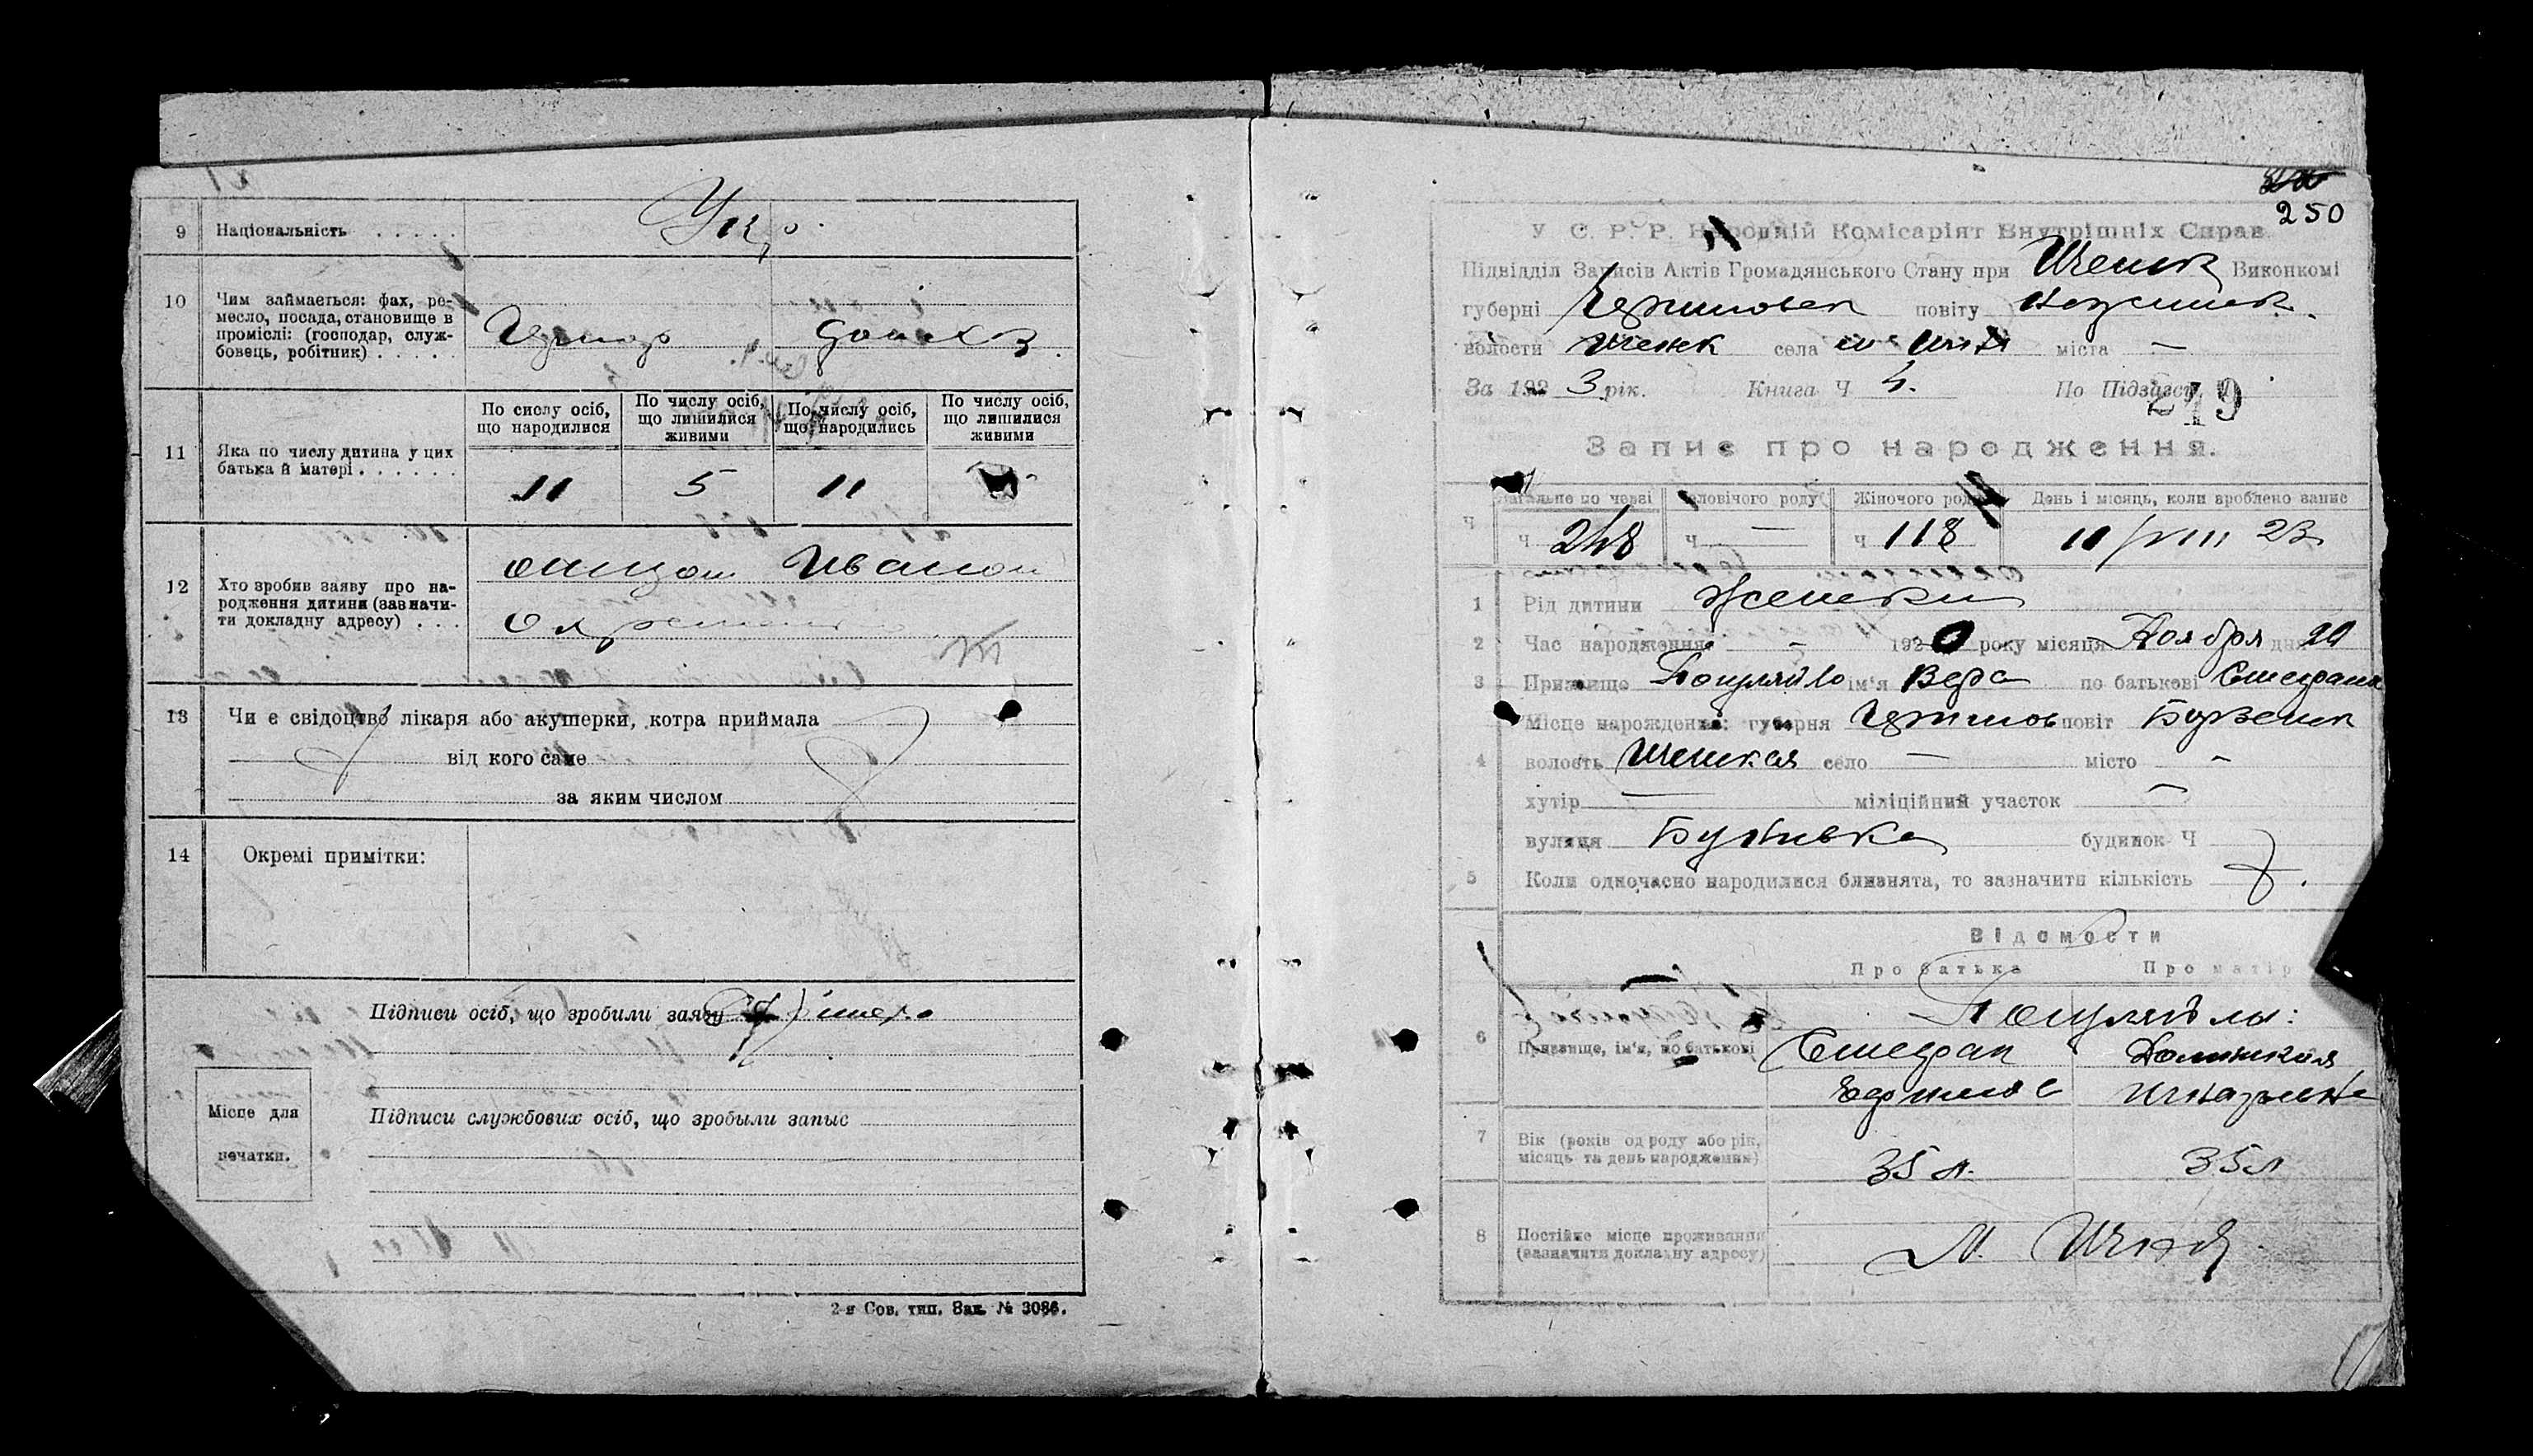 9 Національність . . . . . Укр.
10 Чим займається: фах, ре-
месло, посада, становище в
проміслі: (господар, служ-
бовець, робітник) . . . . .
домохоз.
По сислу осіб, що народилися
По числу осіб, що лишилися живими
По числу осіб, що народились
По числу осіб, що лишилися живими
11 Яка по числу дитина у цих
батька й матері . . . . . .
11 5 11
12 Хто зробив заяву про на-
родження дитини (зазначи-
ти докладну адресу) . . .
Иванов
13 Чи є свідоцтво лікаря або акушерки, котра приймала
від кого саме
за яким числом
14 Окремі примітки:
Підписи осіб, що зробили заяву
Місце для
печатки.
Підписи службових осіб, що зробыли запыс
2-я Сов. тип. Зак. № 3086.
250
У. С. Р. Р. Народній Комісаріят Внутрішніх Справ.
Підвідділ Записів Актів Громадянського Стану при Ичнск Виконкомі
губерні Черниговск повіту
волости Ичнск села міста —
За 1923 рік. Книга Ч По Підзагсу
Запис про народження.
Загальне по черзі Чоловічого роду Жіночого роду День і місяць, коли зроблено запис
Ч Ч 248 Ч — Ч 118 11/VIII 23
1 Рід дитини Женский
2 Час народження - 1920 року місяця Ноября дня 20
3 Призвище ім'я Вера по батькові Стефана
Місце нарождення: губерня Чернигов повіт Борзенск
4 волость Ичнская село — місто -
хутір — міліційний участок —
вулиця будинок Ч
5 Коли одночасно народилися близнята, то зазначити кількість
Відомости
Про батька Про матір
6 Призвище, ім'я, по батькові
Стефан
7 Вік (років од роду або рік,
місяць та день народження)
35 л. 35 л
8 Постійне місце проживання
(зазначити докладну адресу)
М. Ичня